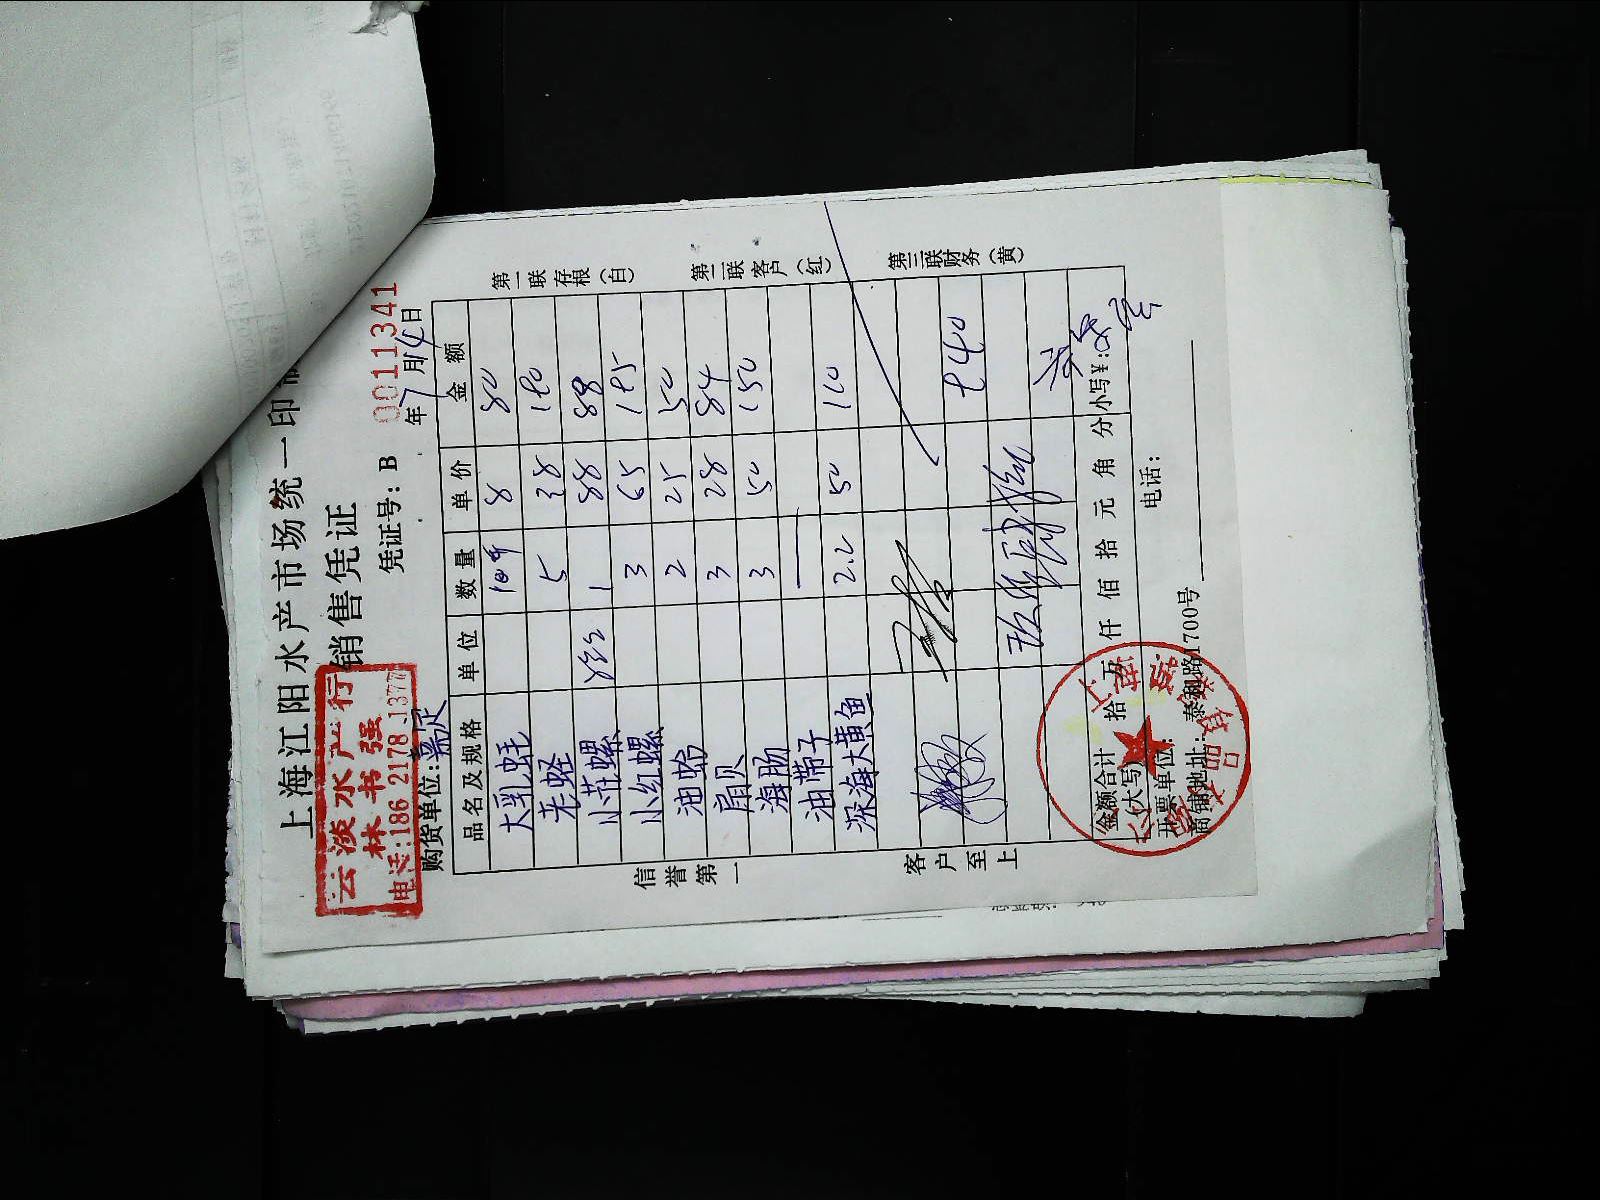 上海江阳水产市场统一印制
销售凭证
云淡水产行
林书强
电话:186 2178 1377
凭证号: B 0011341
购货单位: 
年7月14日
品名及规格 单位 数量 单价 金额
大乳蚝 10个 8 80
老蛏 5 38 190
小花螺 1 88 88
小红螺 3 65 195
油蛤 2 25 50
扇贝 3 28 84
海肠 3 50 150
油带子 —
深海大黄鱼 2.2 50 110
940
信誉第一
客户至上
第一联存根(白)
第二联客户(红)
第三联财务(黄)
金额合计(大写) 拾 万 仟 佰 拾 元 角 分 小写¥:
开票单位: 电话:
商铺地址: 泰和路1700号